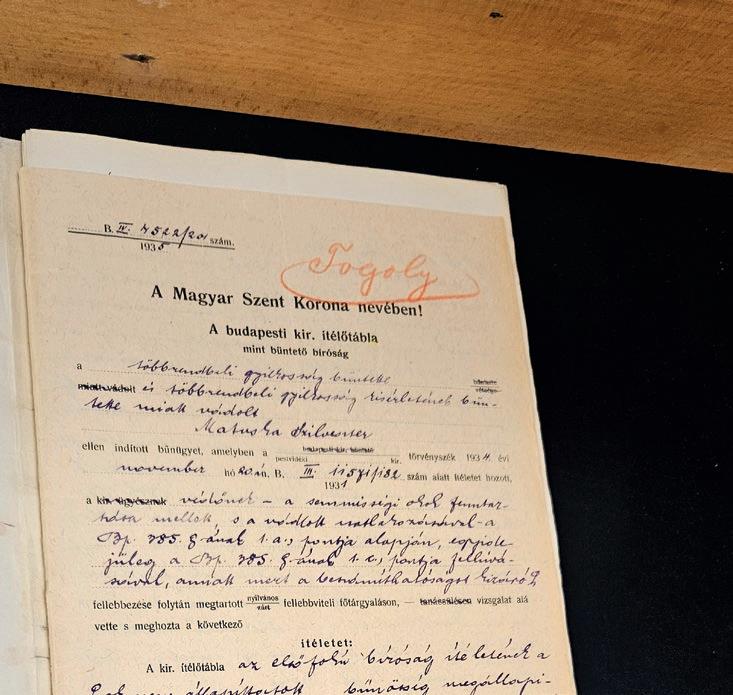 B. IV. 4522/20 szám.
1935
Fogoly
A Magyar Szent Korona nevében!
A budapesti kir. ítélőtábla
mint büntető bíróság
a többrendbeli gyilkosság büntette
miatt vádolt és többrendbeli gyilkosság kisérletének bün-
tette miatt vádolt
Matuska Szilveszter
ellen indított bűnügyet, amelyben a budapesti kir. büntető
pestvidéki kir. törvényszék 1934 évi
november hó 20 án. B. III. szám alatt ítéletet hozott,
1931
a kir. ügyésznek védőnek – a semmisségi okok fenntar-
tása mellett, s a vádlott csatlakozásával – a
Bp. 385. §-ának 1. a., pontja alapján, egyide-
jüleg a Bp. 385. §-ának 1. c., pontja felhivá-
sával, annak mert a beszámíthatóságot kizáró
fellebbezése folytán megtartott nyilvános
zárt fellebbviteli főtárgyaláson, — tanácsülésen vizsgálat alá
vette s meghozta a következő
ítéletet:
A kir. ítélőtábla az elsőfokú bíróság ítéletének a
bűnösség megállapi-